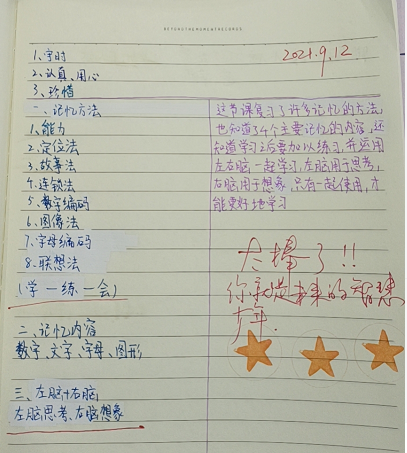 BEYOND THE MOMENT RECORDS
2021.9.12
1、守时
2、认真、用心
3、珍惜
一、记忆方法
1、能力
2、定位法
3、故事法
4、连锁法
5、数字编码
6、图像法
7、字母编码
8、联想法
(学一练一会)
二、记忆内容
数字、文字、字母、图形
三、左脑+右脑
左脑思考、右脑想象
这节课复习了许多记忆的方法,
也知道了4个主要记忆的内容,还
知道学习之后要加以练习,并运用
左右脑一起学习,左脑用于思考,
右脑用于想象,只有一起使用,才
能更好地学习
太棒了!!
你就是未来的智慧
少年.